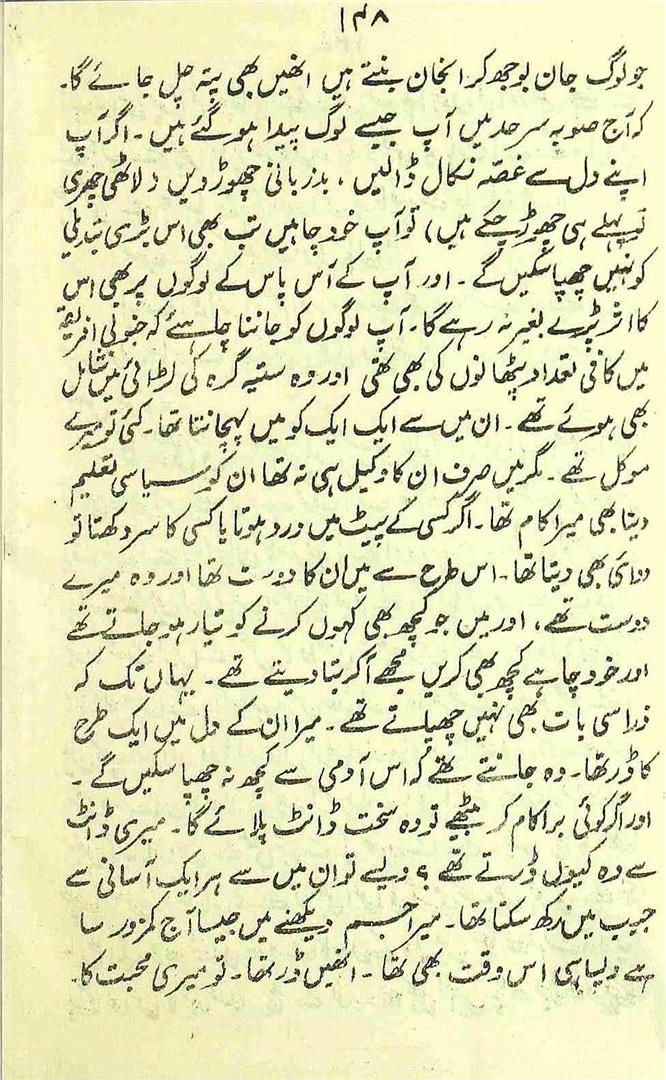 ۱۴۸
جو لوگ جان بوجھ کر انجان بنتے ہیں انھیں بھی پتہ چل جائے گا۔
کہ آج صوبہ سرحد میں آپ جیسے لوگ پیدا ہو گئے ہیں۔ اگر آپ
اپنے دل سے غصّہ نکال ڈالیں، بدزبانی چھوڑ دیں (لاٹھی چھری
تو پہلے ہی چھوڑ چکے ہیں) تو آپ خود چاہیں تب بھی اس بڑی تبدیلی
کو نہیں چھپا سکیں گے۔ اور آپ کے آس پاس کے لوگوں پر بھی اس
کا اثر پڑے بغیر نہ رہے گا۔ آپ لوگوں کو جاننا چاہئے کہ جنوبی افریقہ
میں کافی تعداد پٹھانوں کی بھی تھی اور وہ ستیہ گرہ کی لڑائی میں شامل
بھی ہوئے تھے۔ ان میں سے ایک ایک کو میں پہچانتا تھا۔ کئی تو میرے
موکل تھے۔ مگر میں صرف ان کا وکیل ہی نہ تھا ان کو سیاسی تعلیم
دینا بھی میرا کام تھا۔ اگر کسی کے پیٹ میں درد ہوتا یا کسی کا سر دکھتا تو
دوائی بھی دیتا تھا۔ اس طرح سے میں ان کا دوست تھا اور وہ میرے
دوست تھے، اور میں جو کچھ بھی کہوں کرنے کو تیار ہو جاتے تھے
اور خود چاہے کچھ بھی کریں مجھے آکر بتا دیتے تھے۔ یہاں تک کہ
ذرا سی بات بھی نہیں چھپاتے تھے۔ میرا ان کے دل میں ایک طرح
کا ڈر تھا۔ وہ جانتے تھے کہ اس آدمی سے کچھ نہ چھپا سکیں گے۔
اور اگر کوئی برا کام کر بیٹھے تو وہ سخت ڈانٹ پلائے گا۔ میری ڈانٹ
سے وہ کیوں ڈرتے تھے؟ ویسے تو ان میں سے ہر ایک آسانی سے
جیب میں رکھ سکتا تھا۔ میرا جسم دیکھنے میں جیسا آج کمزور سا
ہے ویسا ہی اس وقت بھی تھا۔ انھیں ڈر تھا۔ تو میری محبت کا۔